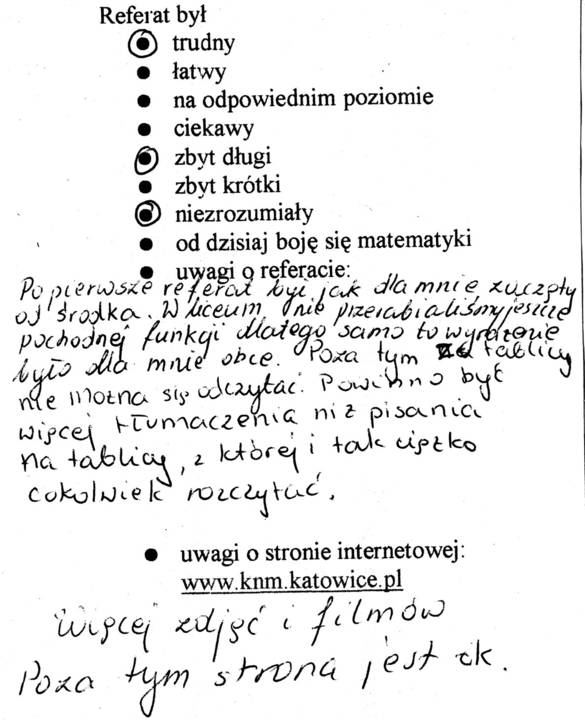 Referat był
• trudny
• łatwy
• na odpowiednim poziomie
• ciekawy
• zbyt długi
• zbyt krótki
• niezrozumiały
• od dzisiaj boję się matematyki
• uwagi o referacie:
Po pierwsze referat był jak dla mnie zaczęty
od środka. W liceum nie przerabialiśmy jeszcze
pochodnej funkcji dlatego samo to wyrażenie
było dla mnie obce. Poza tym z tablicy
nie można się odczytać. Powinno być
więcej tłumaczenia niż pisania
na tablicy, z której i tak ciężko
cokolwiek rozczytać.
• uwagi o stronie internetowej:
www.knm.katowice.pl
Więcej zdjęć i filmów
Poza tym strona jest ok.